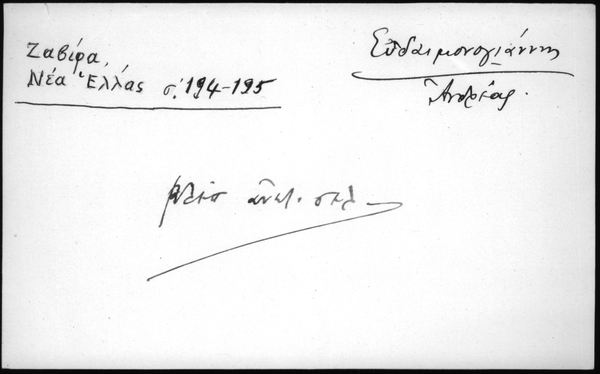 Ζαβίρα,
Νέα Ἑλλάς σ. 194-195
Εὐδαιμονογιάννης
Ἀνδρέας.
βλέπ ἀνωτ. σελ